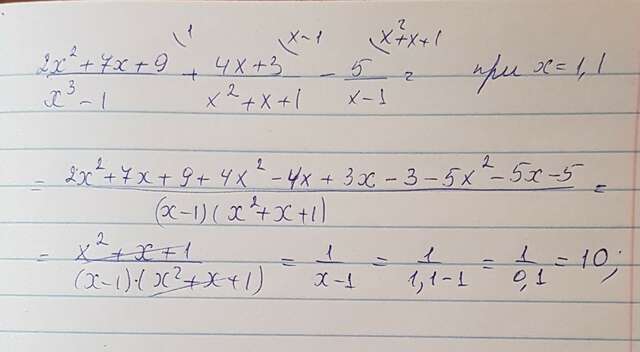 (2x²+7x+9)/(x³-1) \1 + (4x+3)/(x²+x+1) \x-1 - 5/(x-1) \x²+x+1 = при x=1,1
= (2x²+7x+9+4x²-4x+3x-3-5x²-5x-5)/((x-1)(x²+x+1)) =
= (x²+x+1)/((x-1)·(x²+x+1)) = 1/(x-1) = 1/(1,1-1) = 1/0,1 = 10;